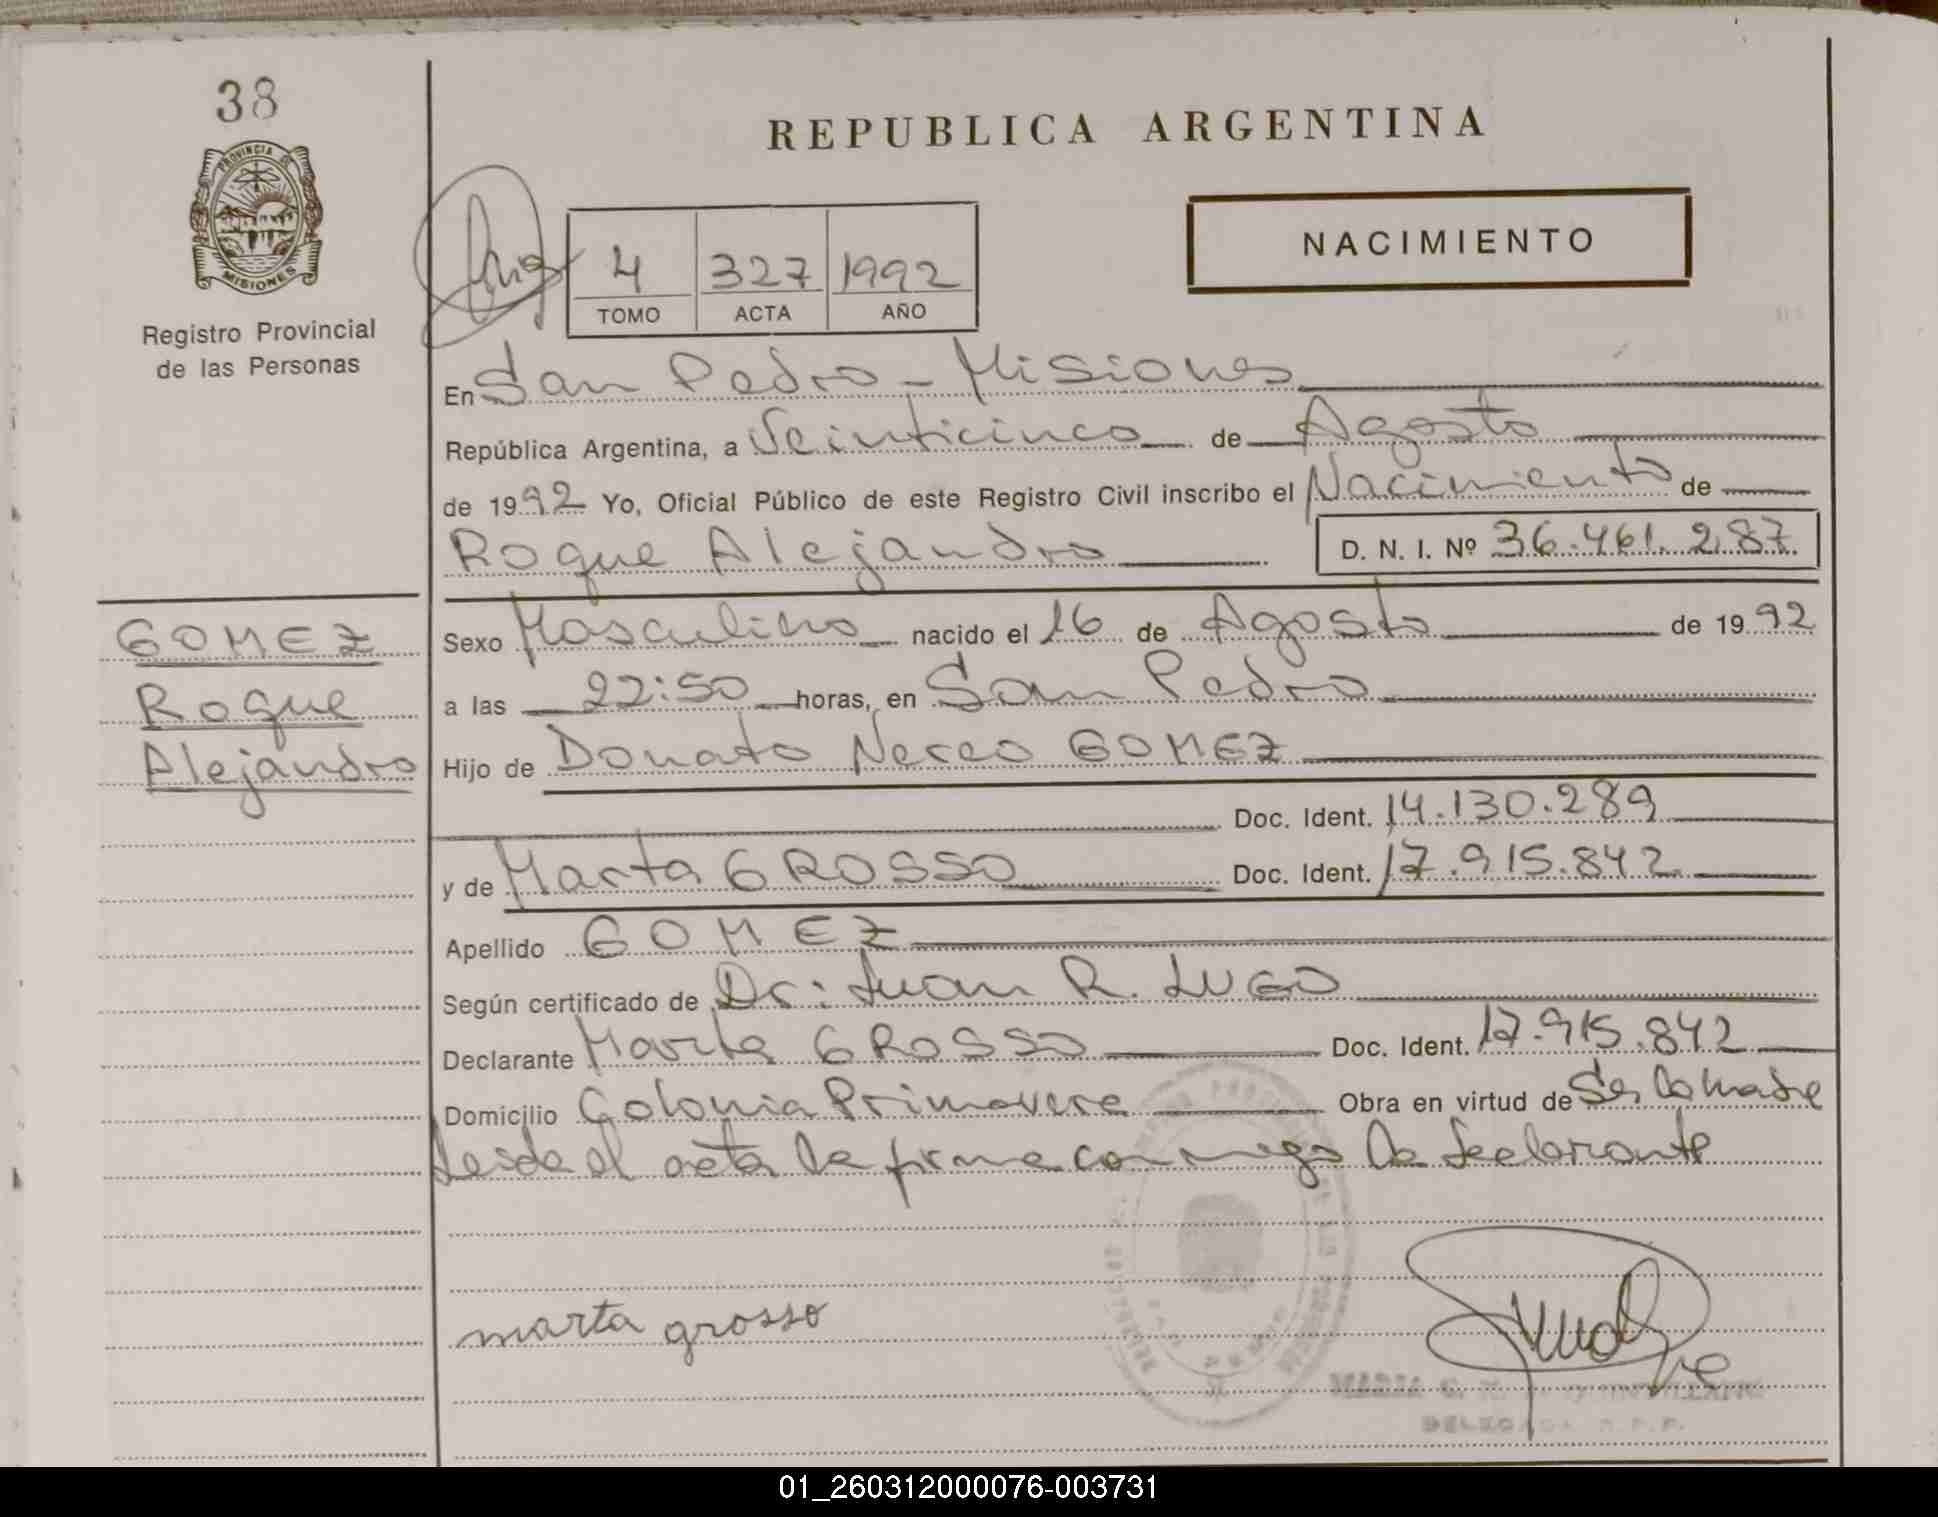 38
PROVINCIA DE
MISIONES
Registro Provincial
de las Personas
REPUBLICA ARGENTINA
NACIMIENTO
4 327 1992
TOMO ACTA AÑO
En San Pedro - Misiones
República Argentina, a Veinticinco de Agosto
de 1992 Yo, Oficial Público de este Registro Civil inscribo el Nacimiento de
Roque Alejandro D. N. I. Nº 36.461.287
GOMEZ
Roque
Alejandro
Sexo Masculino nacido el 16 de Agosto de 1992
a las 22:50 horas, en San Pedro
Hijo de Donato Nereo GOMEZ
Doc. Ident. 14.130.289
y de Marta GROSSO Doc. Ident. 17.915.842
Apellido GOMEZ
Según certificado de Dr: Juan R. LUGO
Declarante Marta GROSSO Doc. Ident. 17.915.842
Domicilio Colonia Primavera Obra en virtud de Ser la madre
Leida el acta la firma conmigo la declarante
marta grosso
MARIA
DELEGADA R.P.P.
01_260312000076-003731